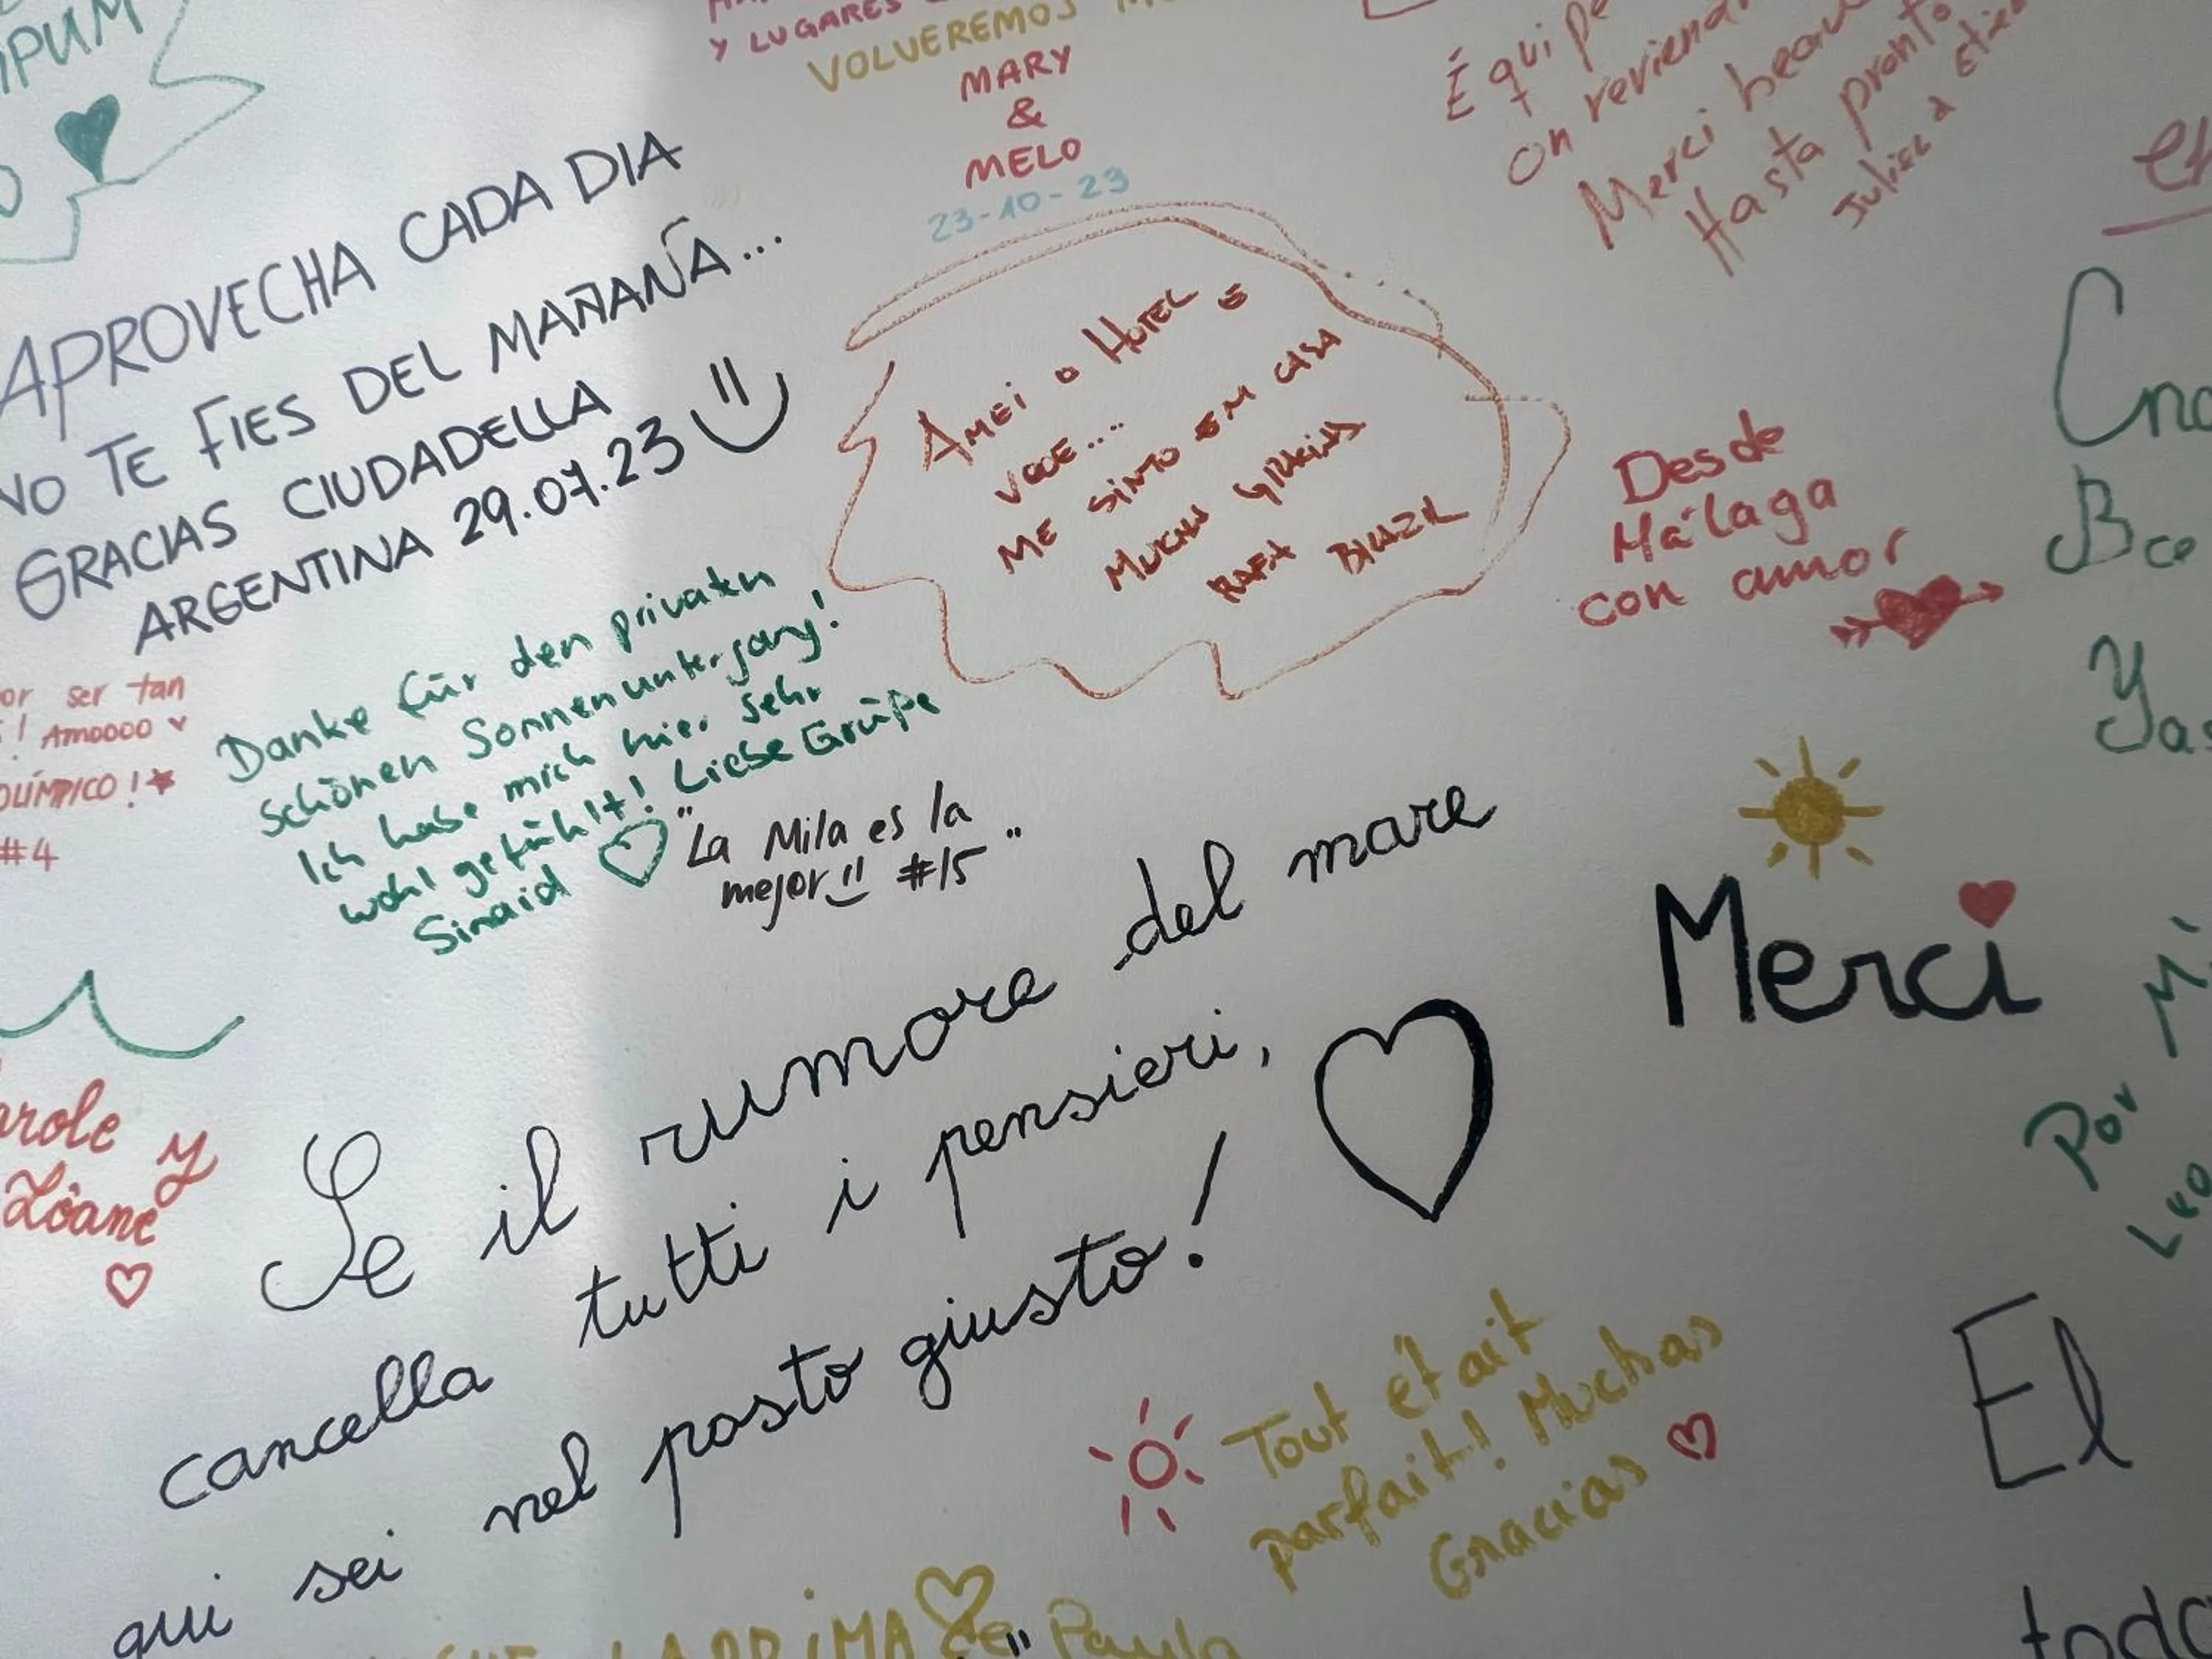 Y LUGARES
VOLVEREMOS
MARY
&
MELO
23-10-23
Équipe
On reviendra
Merci beau
Hasta pronto
APROVECHA CADA DIA
NO TE FIES DEL MAÑANA...
GRACIAS CIUDADELLA
ARGENTINA 29.07.23
AMEI O HOTEL E
VOCE....
ME SINTO EM CASA
MUCHAS GRACIAS
RAFA BRAZIL
Desde
Málaga
con amor
Danke für den privaten
schönen Sonnenuntergang!
Ich habe mich hier sehr
wohl gefühlt! Liebe Grüße
Sinaid
or ser tan
! AMOOOO
OLÍMPICO!
#4
"La Mila es la
mejor #15"
Merci
Se il rumore del mare
cancella tutti i pensieri,
qui sei nel posto giusto!
arole y
Zôane
Tout était
parfait! Muchas
Gracias
Por
El
de Paula